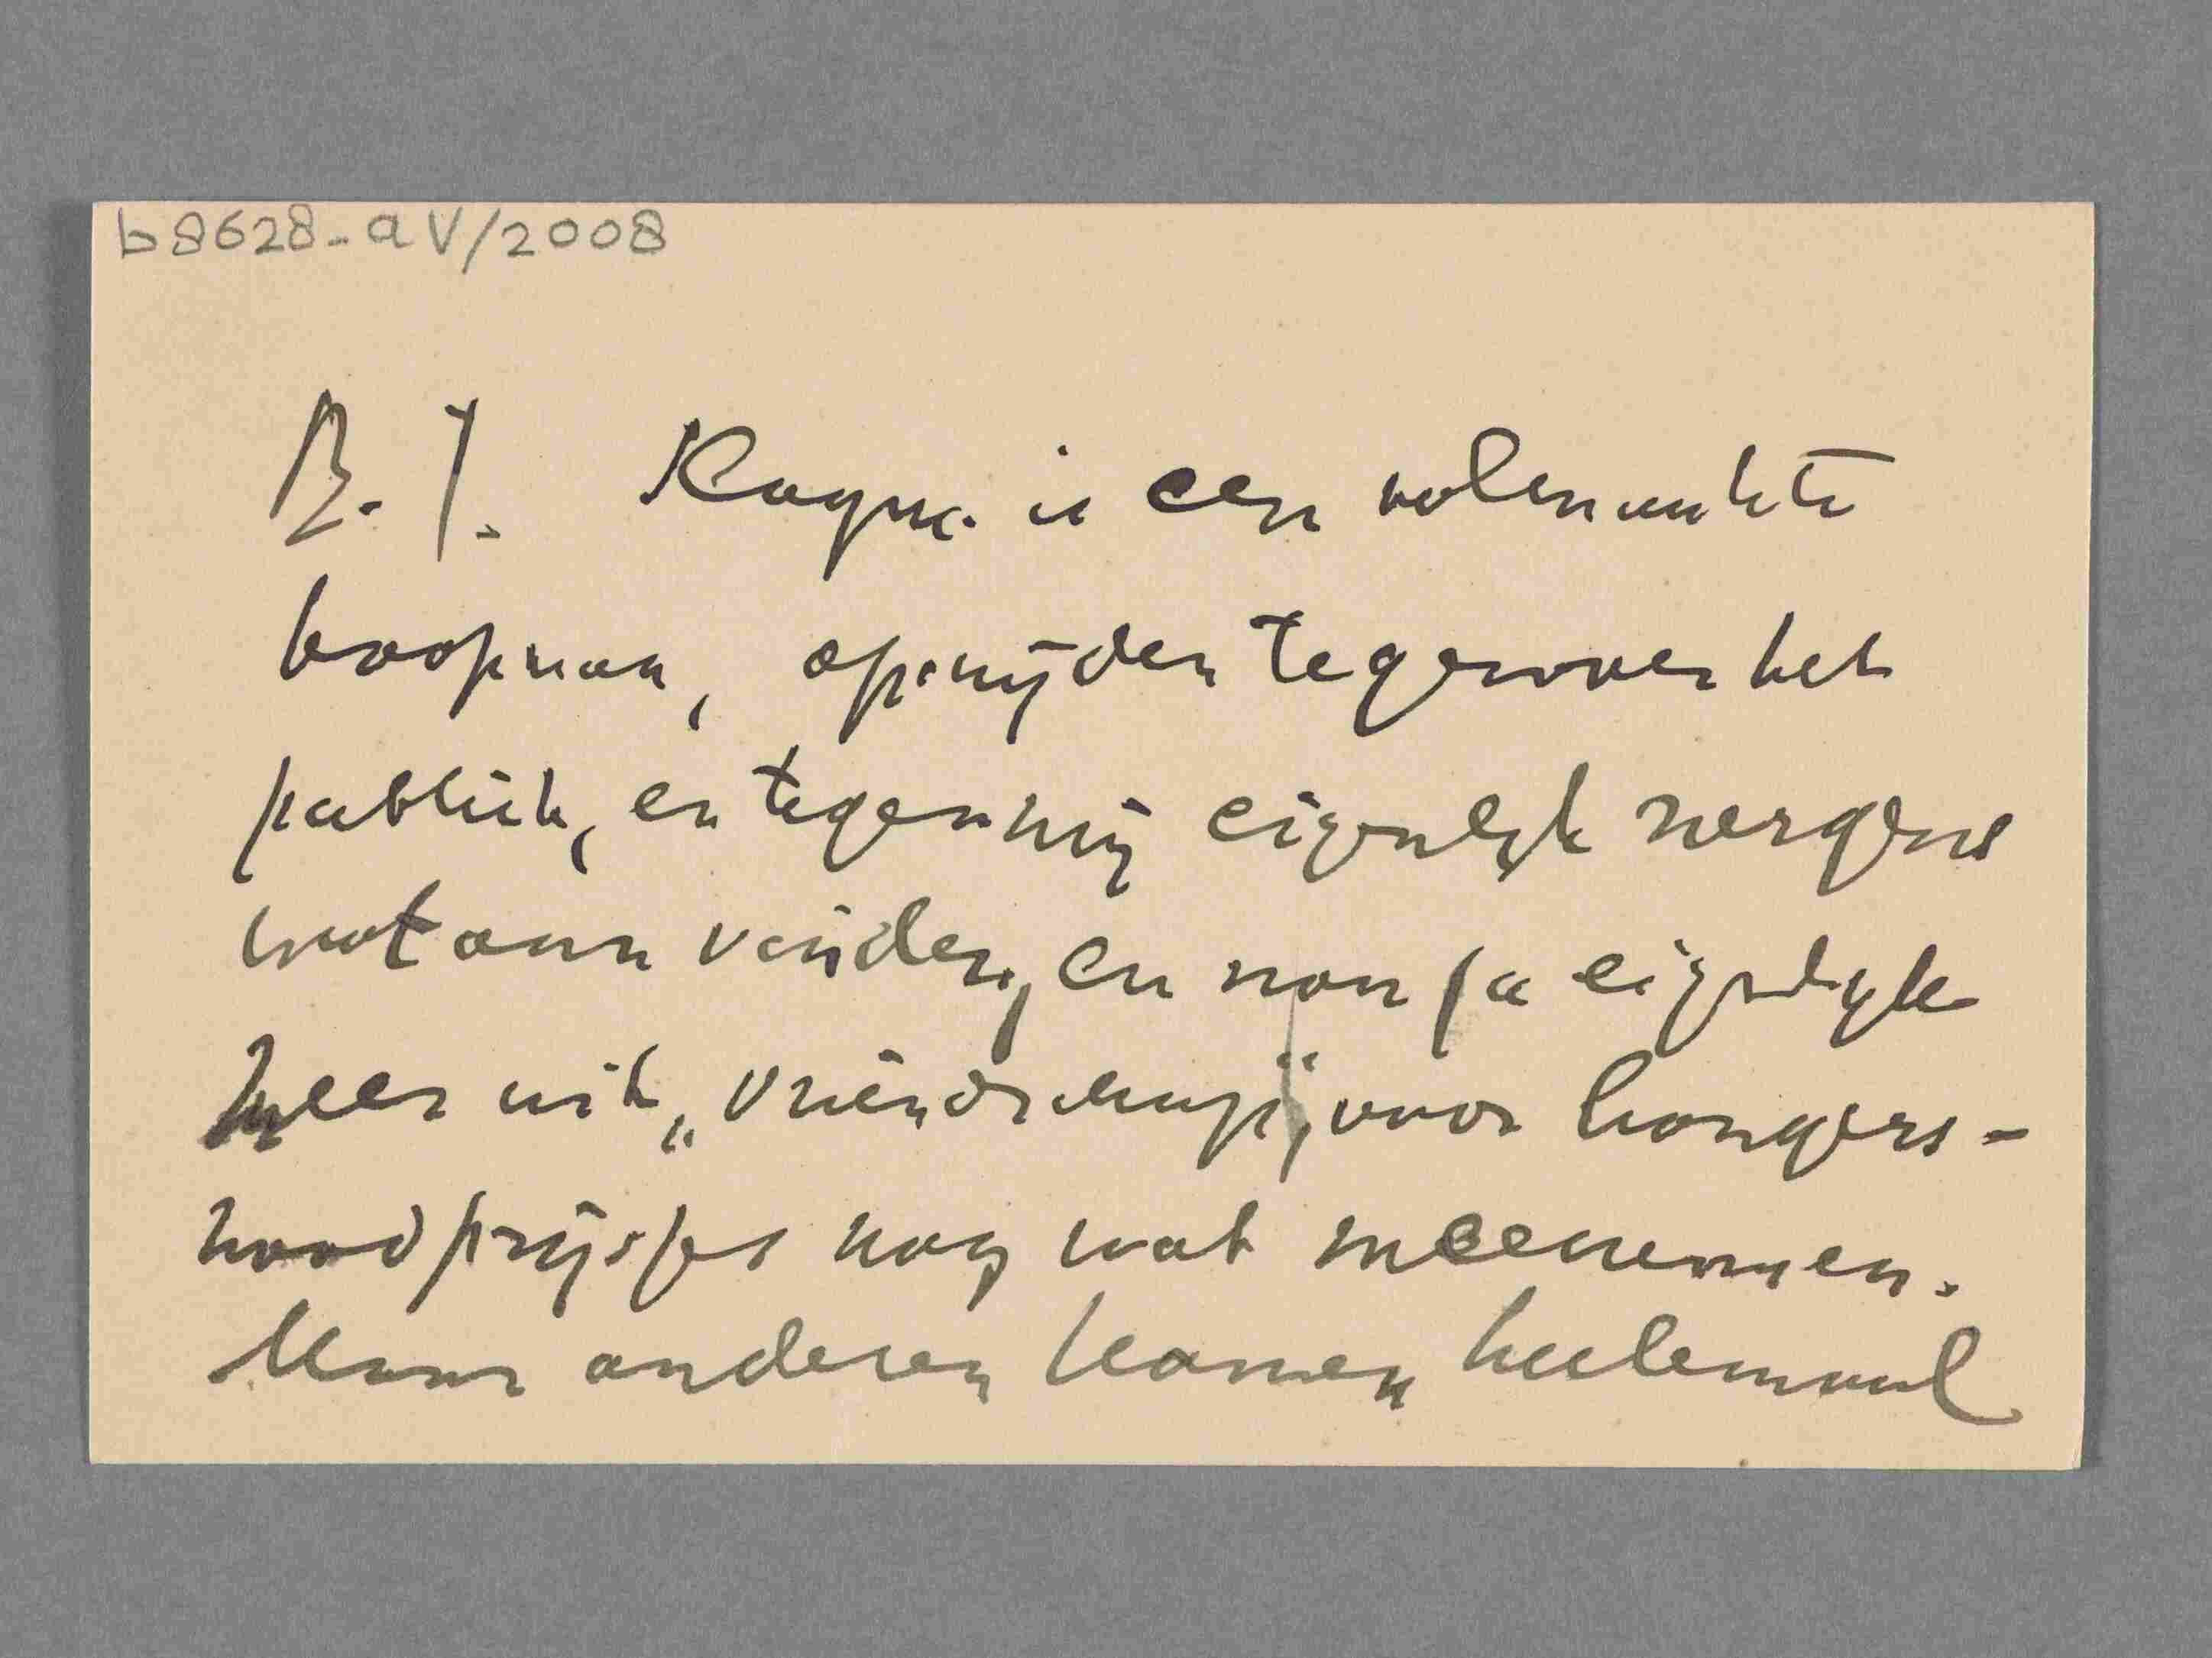 b8628-aV/2008
B. J. is een volmaakte
koopman, op-snijden tegenover het
publiek, en tegen mij eigenlijk nergens
wat aan vinden, en van ja eigenlijk
meer uit „vriendschap", voor hongers-
noodprijsjes nog wat meenemen.
Maar anderen komen heelemaal